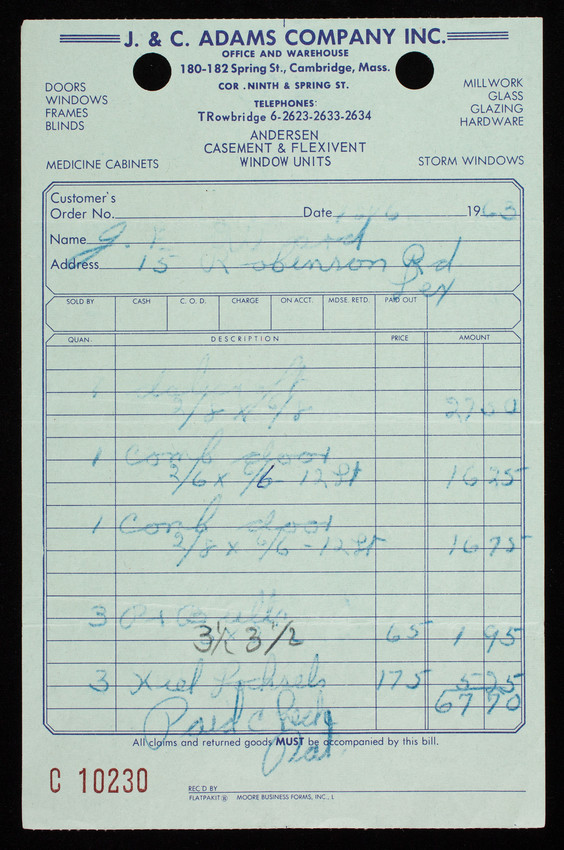 J. & C. ADAMS COMPANY INC.
OFFICE AND WAREHOUSE
180-182 Spring St., Cambridge, Mass.
COR. NINTH & SPRING ST.
TELEPHONES:
TRowbridge 6-2623-2633-2634
DOORS
WINDOWS
FRAMES
BLINDS
MEDICINE CABINETS
ANDERSEN
CASEMENT & FLEXIVENT
WINDOW UNITS
MILLWORK
GLASS
GLAZING
HARDWARE
STORM WINDOWS
Customer's
Order No. Date 1963
Name J.
Address 15 Robinson Rd
Lex
SOLD BY CASH C. O. D. CHARGE ON ACCT. MDSE. RETD. PAID OUT
QUAN. DESCRIPTION PRICE AMOUNT
1
2/8 x 6/8 27 00
1 Comb door
2/6 x 6/6 - 12 Lt 16 25
1 Comb door
2/8 x 6/6 - 12 Lt 16 75
3
3 1/2 x 3 1/2 65 1 95
3 175 5 25
67 70
Paid Check
All claims and returned goods MUST be accompanied by this bill.
C 10230
REC'D BY
FLATPAKIT ® MOORE BUSINESS FORMS, INC., L